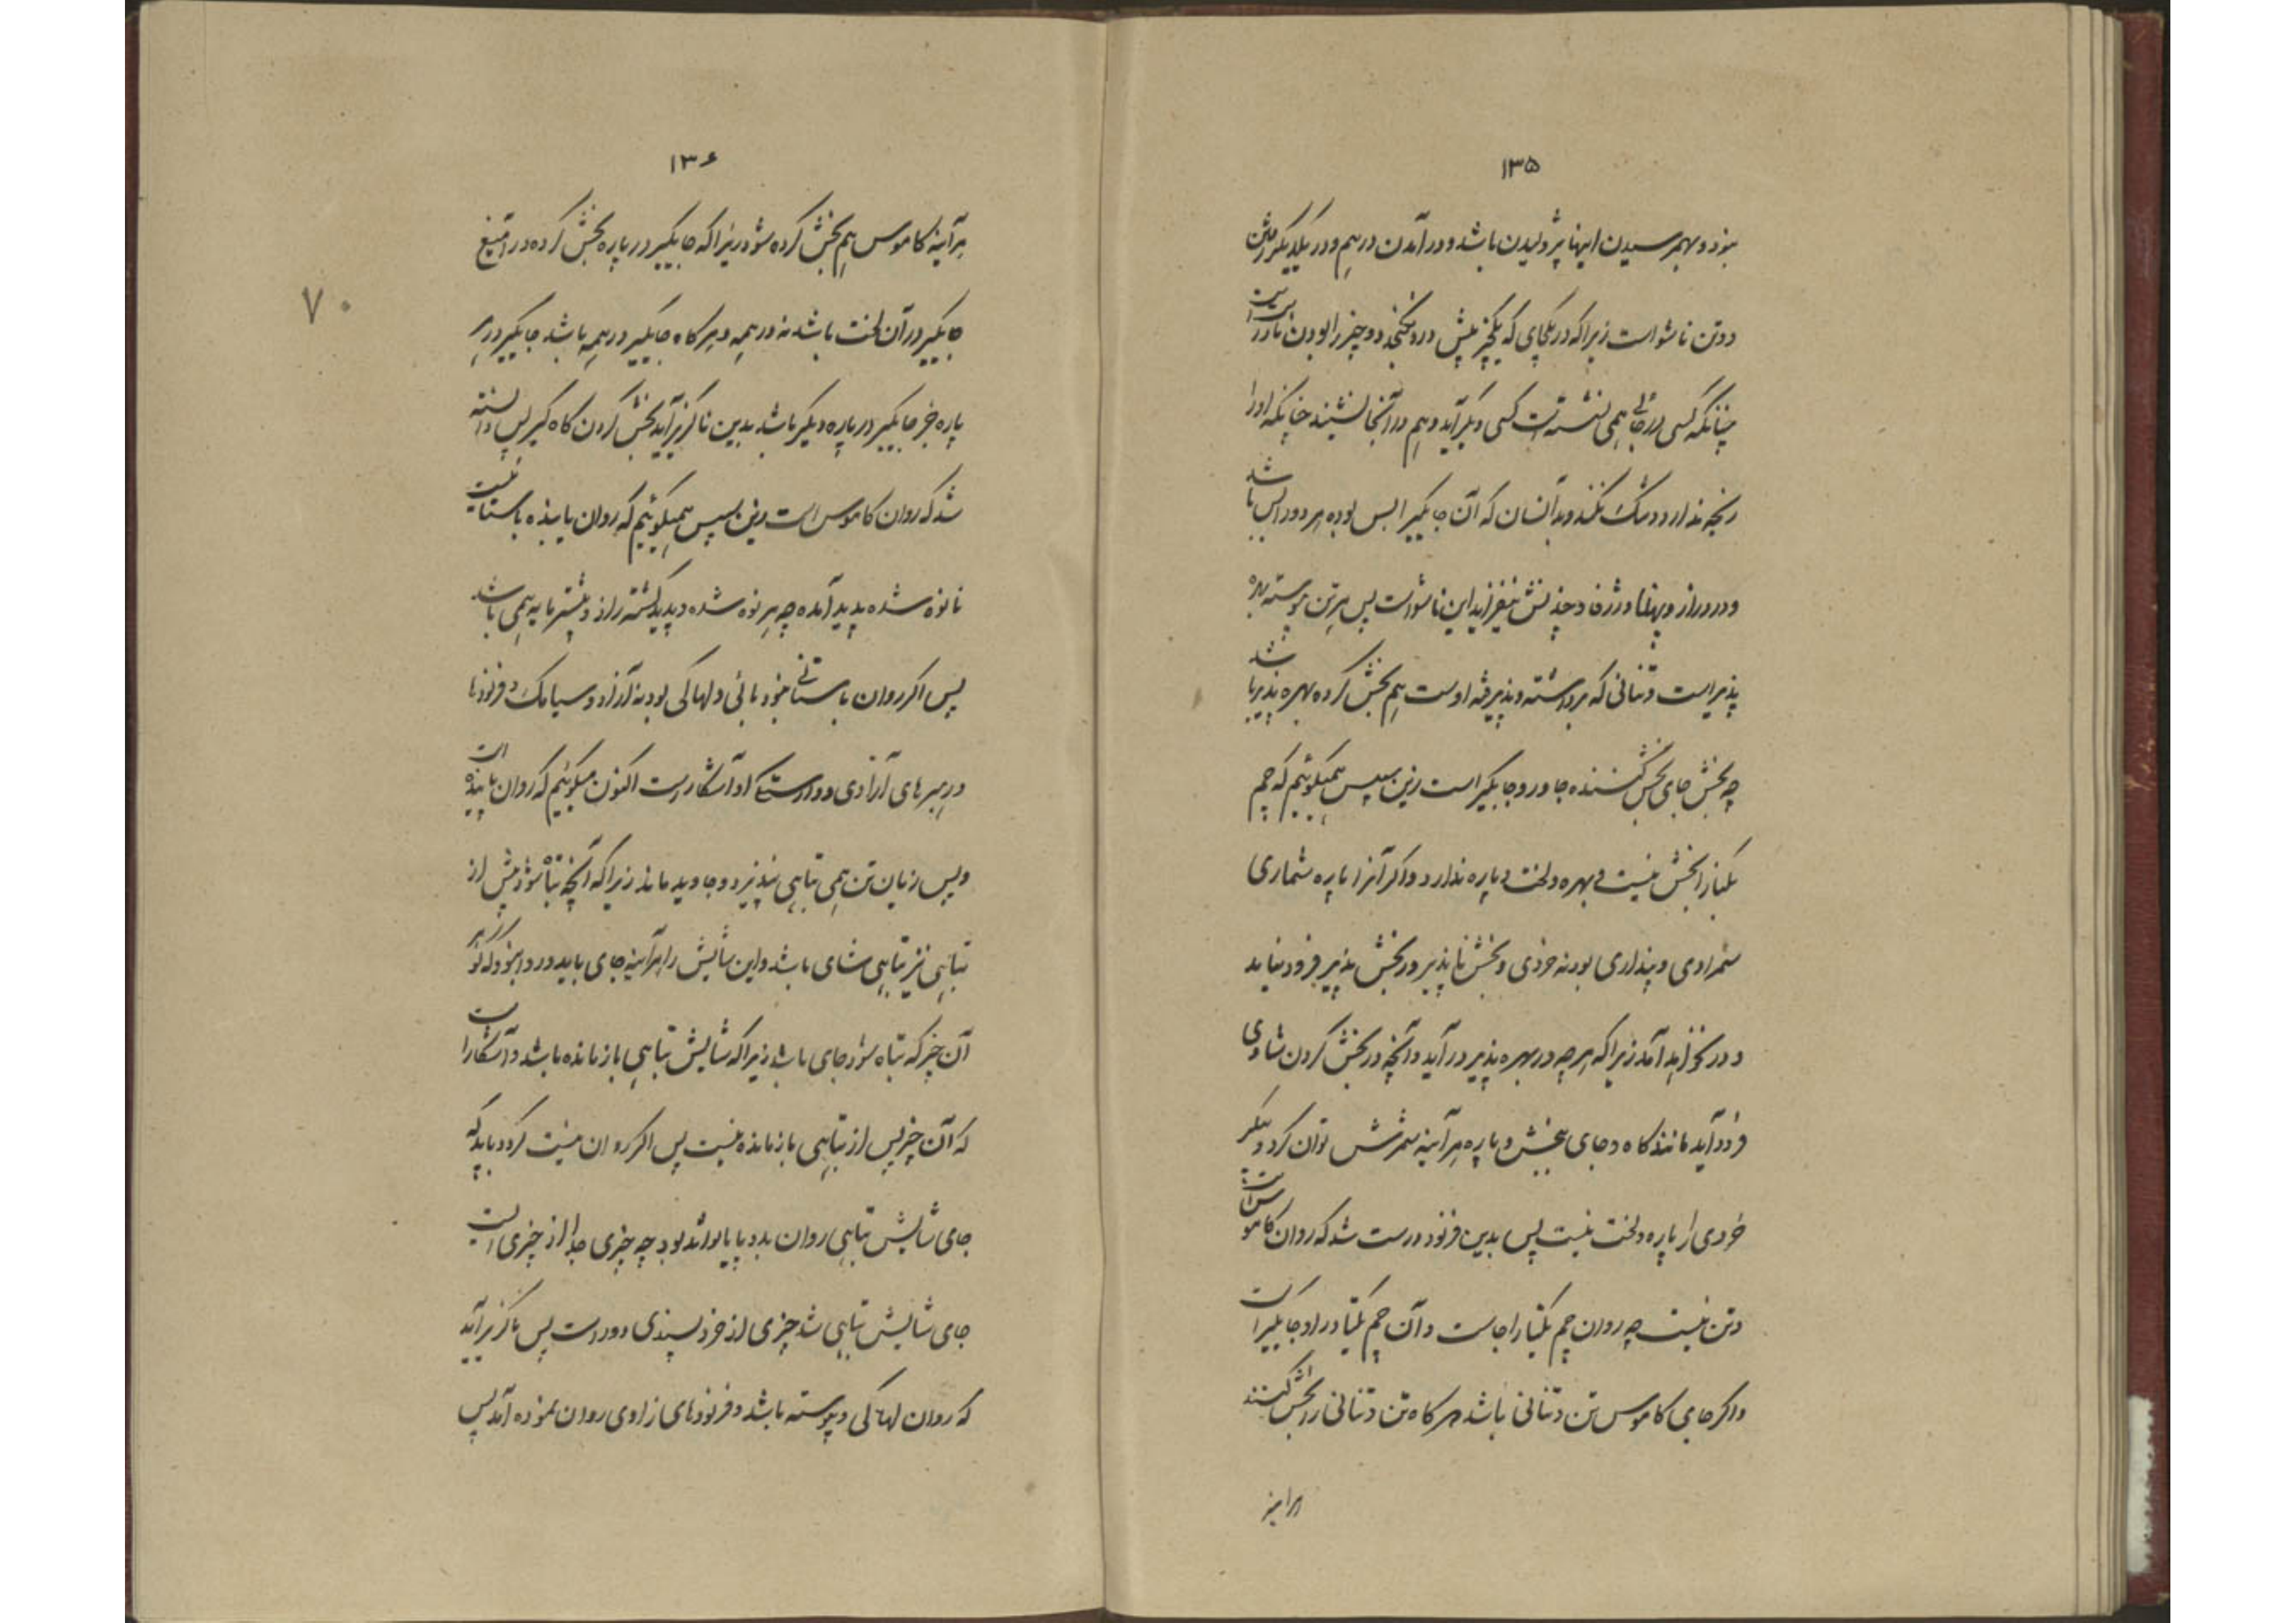 ۱۳۵
بنود و بهم رسیدن اینها پژولیدن باشد و در آمدن در هم و در یکدیگر رفتن
دو تن ناشو است زیرا که در یکجای که یکچیز بیش در و نگنجد دو چیز را بودن نادرست
چنانکه کسی در جائی همی نشسته است کسی دیگر آید و هم در آنجا نشیند چنانکه او را
رنجه ندارد و تنگ نکند و بدانسان که آن جایگیر را بس بوده هر دو را بس باشد
و در دراز و پهنا و ژرفا و چند نش نیفزاید این ناشو است پس هر تن پیوسته بهره
پذیر است و تنانی که برداشته و پذیرفته اوست هم بخش کرده بهره پذیر باشد
چه بخش جای بخش کننده جاور و جایگیر است زین سپس همیگوئیم که چم
یکتا را بخش نیست و بهره و لخت و پاره ندارد و اگر آنرا پاره شماری
سمرادی و پنداری بود نه خردی و بخش ناپذیر در بخش پذیر فرود نیاید
و در نخواهد آمد زیرا که هر چه در بهره پذیر در آید و آنچه در بخش کردن شاوی
فرود آید مانند گاه و جای بخش و پاره هر آینه سمرشش توان کرد و پیکر
خردی را پاره و لخت نیست پس بدین فرنود درست شد که روان کاموس است
و تن نیست چه روان چم یکتا را جاست و آن چم یکتا در او جایگیر است
و اگر جای کاموس تن و تنانی باشد هر گاه تن و تنانی را بخش کنند
هر آینه
۱۳۶
هر آینه کاموس هم بخش کرده شود زیرا که جایگیر در پاره بخش کرده در
جایگیر در آن لخت باشد نه در همه و هر گاه جایگیر در همه باشد جایگیر در هر
پاره جز جایگیر در پاره دیگر باشد بدین ناگزیر آید بخش کردن گاه گیر پس دانسته
شد که روان کاموس است زین سپس همیگوئیم که روان پاینده باستانیست
نانوه شده پدید آمده چه هر نوه شده و پدید گشته را از و پیشتر مایه همی باشد
پس اگر روان باستانی نبود مائی و لهاکی بود نه آزاد و سیامک و فرنود نا
ور هبر های آزادی و وارستگی او آشکار است اکنون میگوئیم که روان پاینده است
و پس زیان تن همی تباهی نپذیرد و جاوید ماند زیرا که آنچه تباه شود پیش از
تباهی نیز تباهی شای باشد و این شایش را هر آینه جای باید و روا نبود که نو گزیر
آن چیز که تباه شود جای باشد زیرا که شایش تباهی باز مانده باشد و آشکار است
که آن چیز پس از تباهی باز مانده نیست پس اگر روان نیست گردد باید که
جای شایش تباهی روان بدو پایا تواند بود چه چیزی جدا از چیزی است
جای شایش تباهی شد چیزی از خرد پسندی دور است پس ناگزیر آید
که روان لهاکی و پیوسته باشد و فرنودهای آزادی روان نموده آمد پس
۷۰